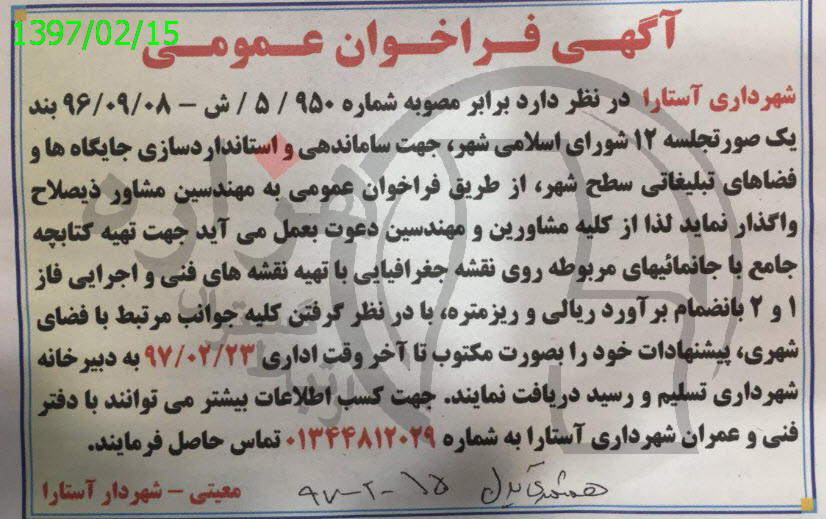 1397/02/15
آگهی فراخوان عمومی
شهرداری آستارا در نظر دارد برابر مصوبه شماره ۹۵۰ / ۵ / ش – ۹۶/۰۹/۰۸ بند
یک صورتجلسه ۱۲ شورای اسلامی شهر، جهت ساماندهی و استانداردسازی جایگاه ها و
فضاهای تبلیغاتی سطح شهر، از طریق فراخوان عمومی به مهندسین مشاور ذیصلاح
واگذار نماید لذا از کلیه مشاورین و مهندسین دعوت بعمل می آید جهت تهیه کتابچه
جامع با جانمائیهای مربوطه روی نقشه جغرافیایی با تهیه نقشه های فنی و اجرایی فاز
۱ و ۲ بانضمام برآورد ریالی و ریزمتره، با در نظر گرفتن کلیه جوانب مرتبط با فضای
شهری، پیشنهادات خود را بصورت مکتوب تا آخر وقت اداری ۹۷/۰۲/۲۳ به دبیرخانه
شهرداری تسلیم و رسید دریافت نمایند. جهت کسب اطلاعات بیشتر می توانند با دفتر
فنی و عمران شهرداری آستارا به شماره ۰۱۳۴۴۸۱۲۰۲۹ تماس حاصل فرمایند.
۹۷-۲-۱۵
معیتی – شهردار آستارا
هزاره